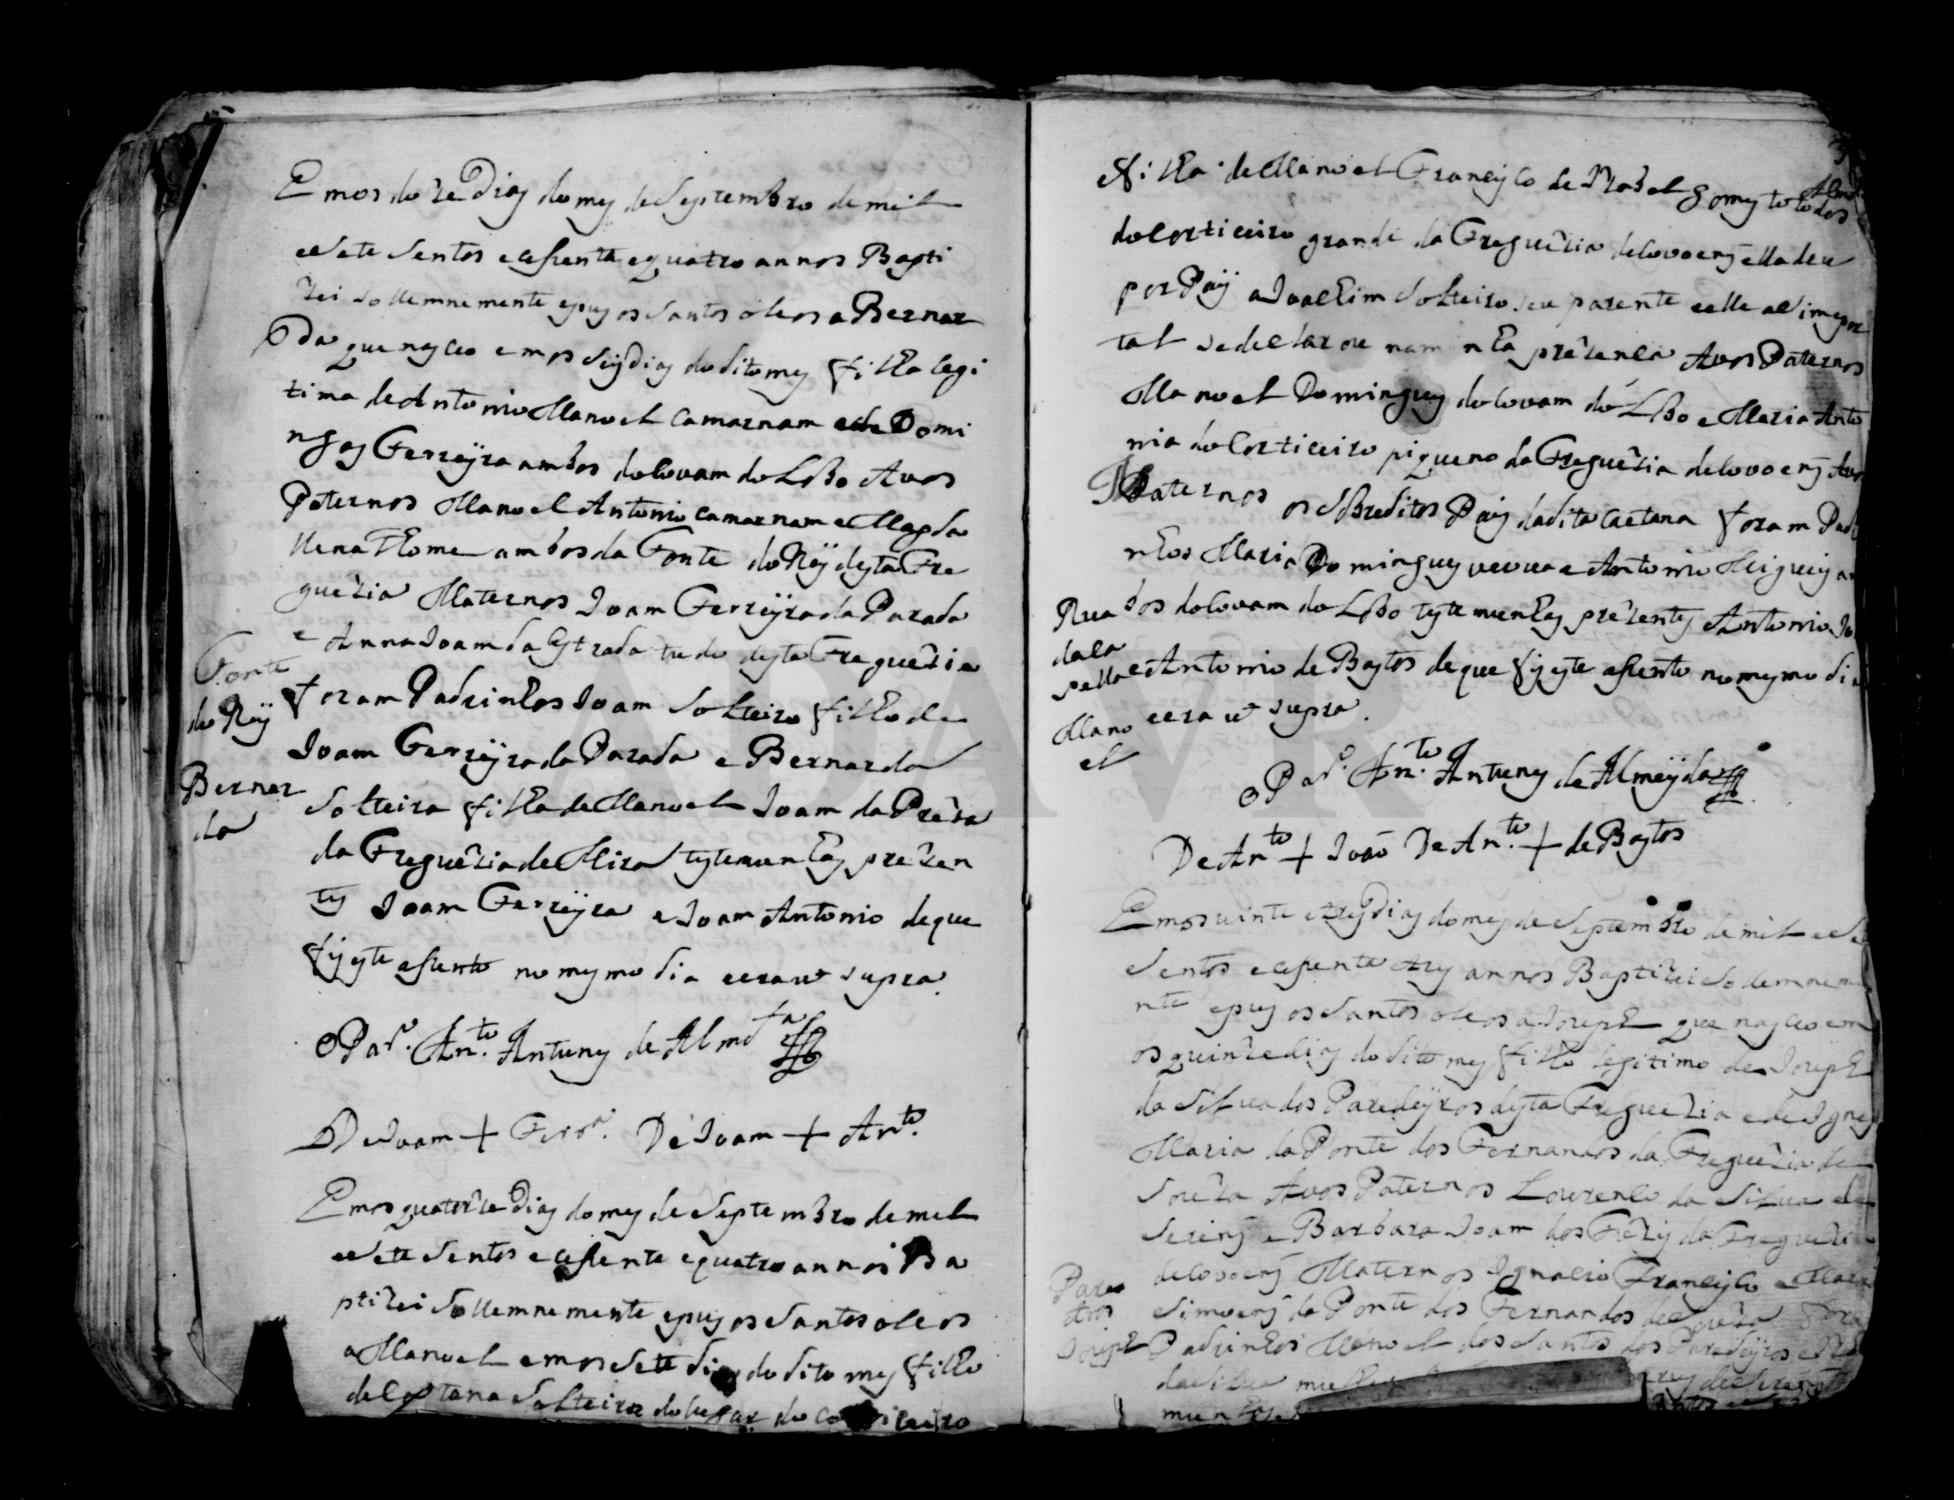 Emos doze Dias do mes de Septembro de mil
e Sete Sentos e cesenta e quatro annos Bapti
zei Sollemnemente e pus os Santos oleos a Bernar
da que nasceo emos Seis Dias do dito mes filha legi
tima de Antonio Manoel Camarnam e de Domi
ngas Ferreÿra ambos do Covam do Lobo Avos
Paternos Manoel Antonio Camarnam e Magda
llena Thome ambos da Fonte do Reÿ desta Fre
guezia Maternos Joam Ferreÿra da Parada
e Anna Joam da Estrada tudo desta Freguezia
foram Padrinhos Joam Solteiro filho de
Joam Ferreÿra da Parada e Bernarda
Solteira filha de Manoel Joam da Preza
da Freguezia de Mira testemunhas prezen
tes Joam Ferreÿra e Joam Antonio de que
fis este asento no mesmo dia e era ut supra
Fonte
do Reÿ
Bernar
da
O Par.º Ant.to Antunes de Almd.ra
De Joam + Ferr.ª De Joam + Ant.to
Emos quatorze Dias do mes de Septembro de mil
e Sete Sentos e cesenta e quatro annos Ba
ptizei Sollemnemente e pus os Santos oleos
a Manoel emos Sete dias do dito mes filho
de Caetana Solteira do lugar do Corticeiro
filha de Manoel Francisco e de Izabel Gomes todos
do Corticeiro grande da Freguezia de Covoens e lla deu
por Paÿ a Joachim Solteiro seu parente e elle
tal se declarou na minha prezenca Avos Paternos
Manoel Domingues do Covam do Lobo e Maria Anto
nia do Corticeiro piqueno da Freguezia de Covoens Avos
Maternos os Sobreditos Pays da dita Caetana foram Padri
nhos Maria Domingues veuva e Antonio Migueis am
bos do Covam do Lobo testemunhas prezentes Antonio
e Antonio de Bastos de que fis este asento no mesmo dia
e era ut supra.
Rua
da Ca
pella
Mano
el
O Par.º Ant.to Antunes de Almeÿda
De Ant.to + Joaõ De Ant.to + de Bastos
Emos vinte e tres Dias do mes de Septembro de mil e Se
Sentos e cesenta annos Baptizei Solemneme
nte e pus os Santos oleos a Joseph que nasceo em
os quinze dias do dito mes filho legitimo de Joseph
da Silva dos Paredeÿros desta Freguezia e de Ignes
Maria da Ponte dos Fernandos da Freguezia de
Soreza Avos Paternos Lourenco da Silva de
e Barbara Joam dos da Freguezia
de Covoens Maternos Ignacio Francisco e Maria
Simoens da Ponte dos Fernandos de foram
Padrinhos Manoel dos Santos dos Paredeÿros e
da Silva
Joseph